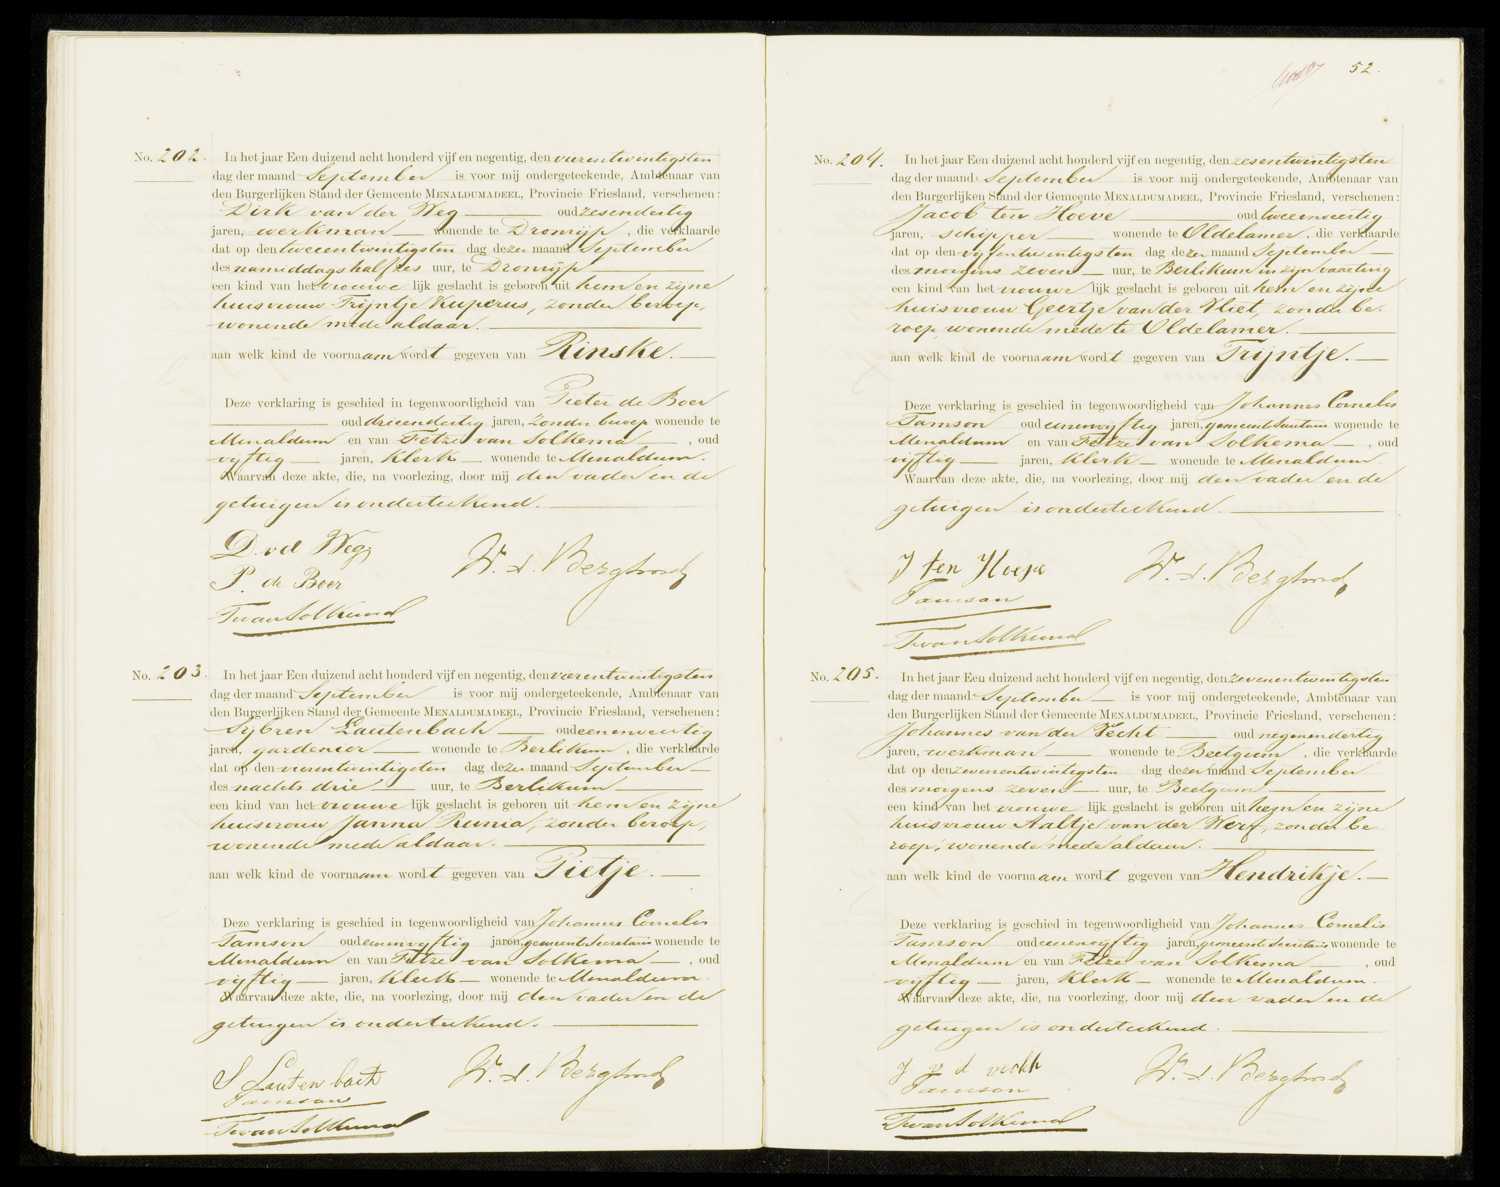 No. 202.
In het jaar Een duizend acht honderd vijf en negentig, den vierentwintigsten
dag der maand September is voor mij ondergeteekende, Ambtenaar van
den Burgerlijken Stand der Gemeente MENALDUMADEEL, Provincie Friesland, verschenen:
Dirk van der Weg oud zesendertig
jaren, werkman wonende te Dronrijp, die verklaarde
dat op den tweeentwintigsten dag dezer maand September
des namiddags half zes uur, te Dronrijp
een kind van het vrouwelijk geslacht is geboren uit hem en zijne
huisvrouw Trijntje Kuperus, zonder beroep,
wonende mede aldaar.
aan welk kind de voornaam wordt gegeven van Rinske.
Deze verklaring is geschied in tegenwoordigheid van Pieter de Boer
oud drieendertig jaren, zonder beroep wonende te
Menaldum en van Fetze van Solkema, oud
vijftig jaren, Klerk wonende te Menaldum.
Waarvan deze akte, die, na voorlezing, door mij den vader en de
getuigen is onderteekend.
D. vd Weg
P. de Boer
FvanSolkema
No. 203.
In het jaar Een duizend acht honderd vijf en negentig, den vierentwintigsten
dag der maand September is voor mij ondergeteekende, Ambtenaar van
den Burgerlijken Stand der Gemeente MENALDUMADEEL, Provincie Friesland, verschenen:
Sybren Lautenbach oud eenenveertig
jaren, gardenier wonende te Berlikum, die verklaarde
dat op den vierentwintigsten dag dezer maand September
des nachts drie uur, te Berlikum
een kind van het vrouwelijk geslacht is geboren uit hem en zijne
huisvrouw Janna Runia, zonder beroep,
wonende mede aldaar.
aan welk kind de voornaam wordt gegeven van Pietje.
Deze verklaring is geschied in tegenwoordigheid van Johannes Cornelis
Tamson oud eenenvijftig jaren, gemeente Secretaris wonende te
Menaldum en van Fetze van Solkema, oud
vijftig jaren, Klerk wonende te Menaldum.
Waarvan deze akte, die, na voorlezing, door mij den vader en de
getuigen is onderteekend.
S Lautenbach
Tamson
FvanSolkema
52.
No. 204.
In het jaar Een duizend acht honderd vijf en negentig, den zesentwintigsten
dag der maand September is voor mij ondergeteekende, Ambtenaar van
den Burgerlijken Stand der Gemeente MENALDUMADEEL, Provincie Friesland, verschenen:
Jacob ten Hoeve oud tweeenveertig
jaren, schipper wonende te Oldelamer, die verklaarde
dat op den vijfentwintigsten dag dezer maand September
des morgens zeven uur, te Berlikum in zijn vaartuig
een kind van het vrouwelijk geslacht is geboren uit hem en zijne
huisvrouw Geertje van der Vliet, zonder be-
roep, wonende mede te Oldelamer.
aan welk kind de voornaam wordt gegeven van Trijntje.
Deze verklaring is geschied in tegenwoordigheid van Johannes Cornelis
Tamson oud eenenvijftig jaren, gemeente Secretaris wonende te
Menaldum en van Fetze van Solkema, oud
vijftig jaren, Klerk wonende te Menaldum.
Waarvan deze akte, die, na voorlezing, door mij den vader en de
getuigen is onderteekend.
J ten Hoeve
Tamson
FvanSolkema
No. 205.
In het jaar Een duizend acht honderd vijf en negentig, den zevenentwintigsten
dag der maand September is voor mij ondergeteekende, Ambtenaar van
den Burgerlijken Stand der Gemeente MENALDUMADEEL, Provincie Friesland, verschenen:
Johannes van der Vecht oud negenendertig
jaren, werkman wonende te Beetgum, die verklaarde
dat op den zevenentwintigsten dag dezer maand September
des morgens zeven uur, te Beetgum
een kind van het vrouwelijk geslacht is geboren uit hem en zijne
huisvrouw Aaltje van der Werf, zonder be-
roep, wonende mede aldaar.
aan welk kind de voornaam wordt gegeven van Hendrikje.
Deze verklaring is geschied in tegenwoordigheid van Johannes Cornelis
Tamson oud eenenvijftig jaren, gemeente Secretaris wonende te
Menaldum en van Fetze van Solkema, oud
vijftig jaren, Klerk wonende te Menaldum.
Waarvan deze akte, die, na voorlezing, door mij den vader en de
getuigen is onderteekend.
J v d vecht
Tamson
FvanSolkema